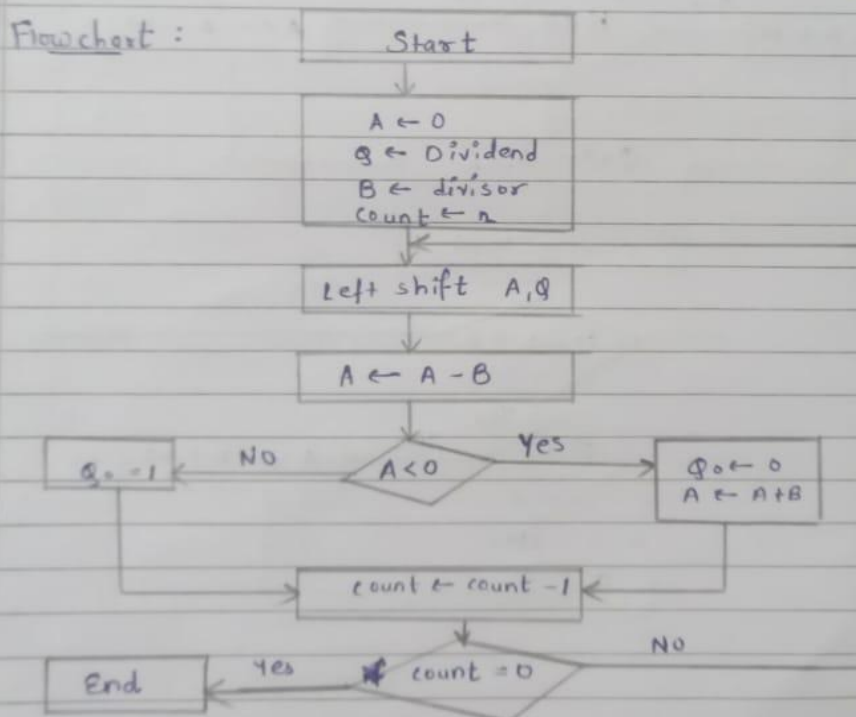 Flowchart :
Start
A ← 0
Q ← Dividend
B ← divisor
count ← n
Left shift A,Q
A ← A - B
A<0
NO
Yes
Q₀ = 1
Q₀ ← 0
A ← A+B
count ← count -1
count = 0
Yes
NO
End